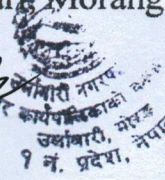 Morang
उर्लाबारी नगरपा
कार्यपालिकाको
उर्लाबारी, मोरङ
१ नं. प्रदेश, नेपाल